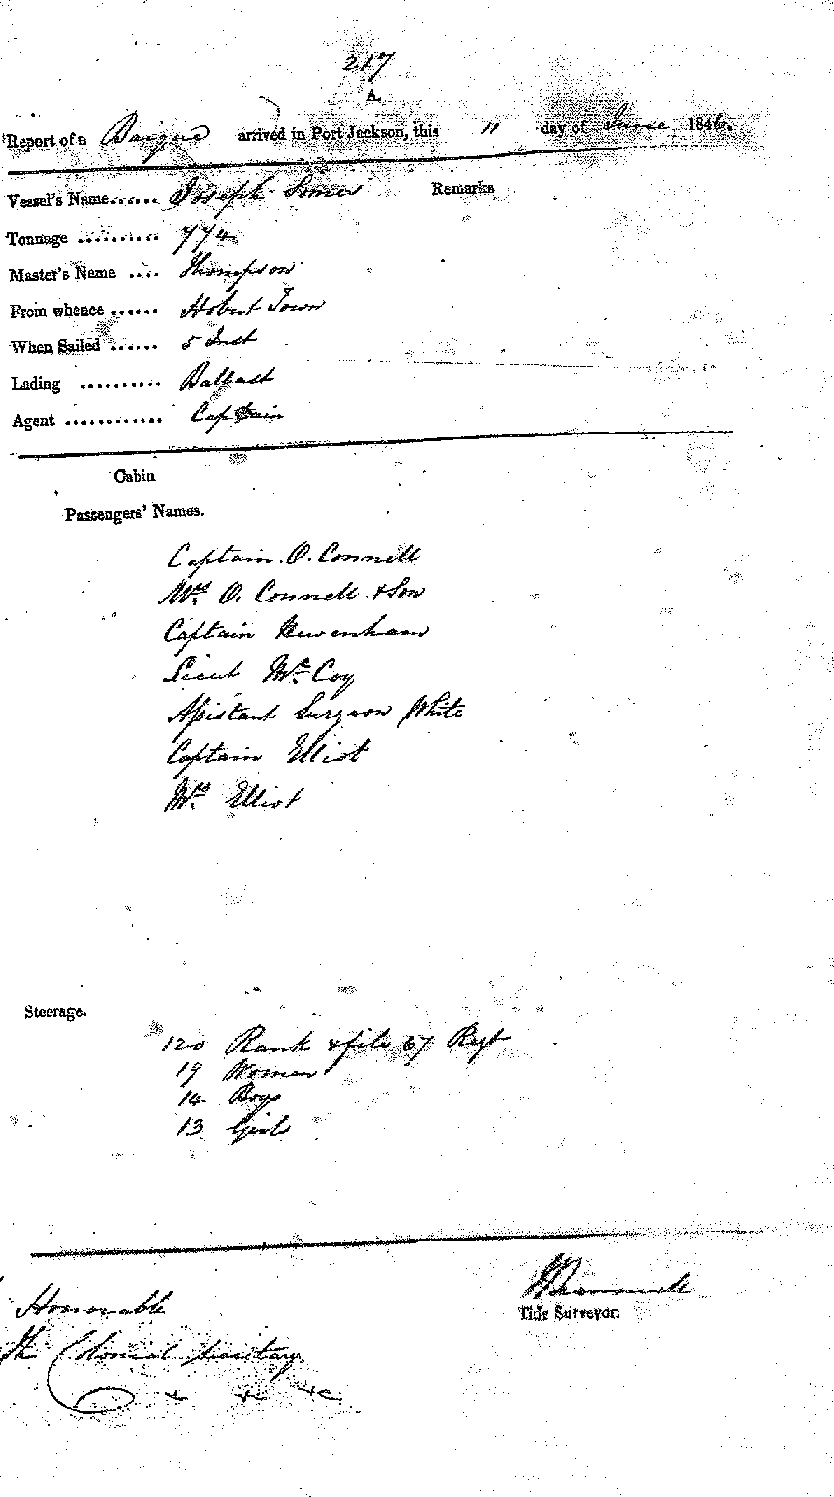 217
A.
Report of a Barque arrived in Port Jackson, this 11 day of June 1846.
Vessel's Name...... Joseph Somes Remarks
Tonnage .......... 774
Master's Name .... Thompson
From whence ...... Hobart Town
When Sailed ...... 5 Inst
Lading .......... Ballast
Agent ............ Captain
Cabin
Passengers' Names.
Captain. O. Connell
Mrs. O. Connell & Son
Captain Newenham
Lieut Mc. Coy
Assistant Surgeon White
Captain Elliot
Mrs. Elliot
Steerage.
120 Rank & file 67 Regt
19 Women
14 Boys
13 Girls
Tide Surveyor.
Honorable
The Colonial Secretary
&c &c